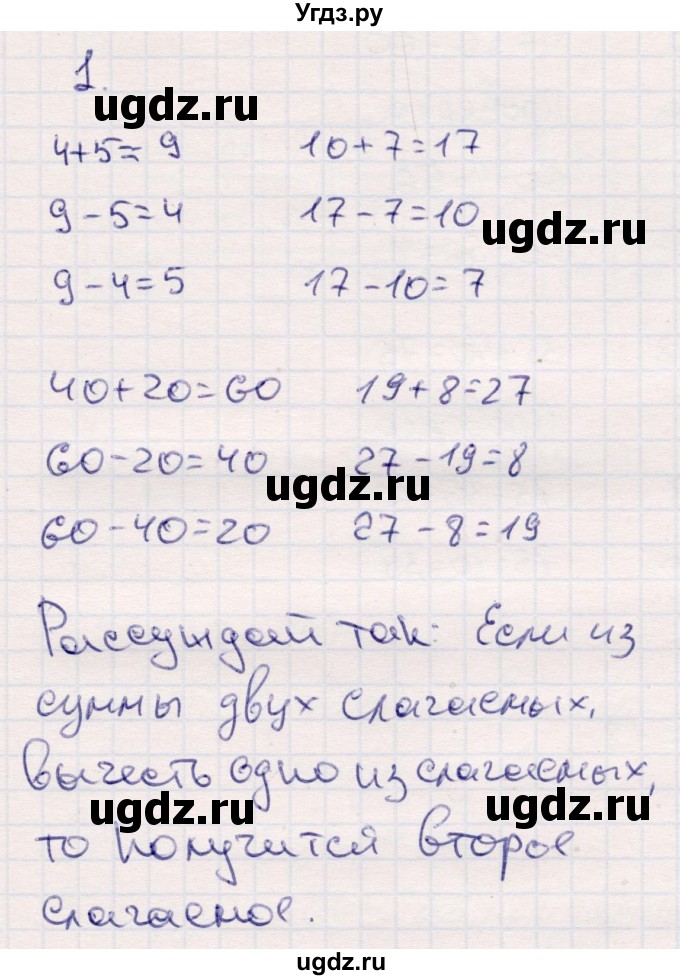 Угдз.ру
1.
ugdz.ru
4+5=9 10+7=17
9-5=4 17-7=10
ugdz.ru
9-4=5 17-10=7
40+20=60 19+8=27
60-20=40 27-19=8
ugdz.ru
60-40=20 27-8=19
Рассуждай так: Если из
суммы двух слагаемых,
вычесть одно из слагаемых,
ugdz.ru ugdz.ru
то получится второе
слагаемое.
ugdz.ru